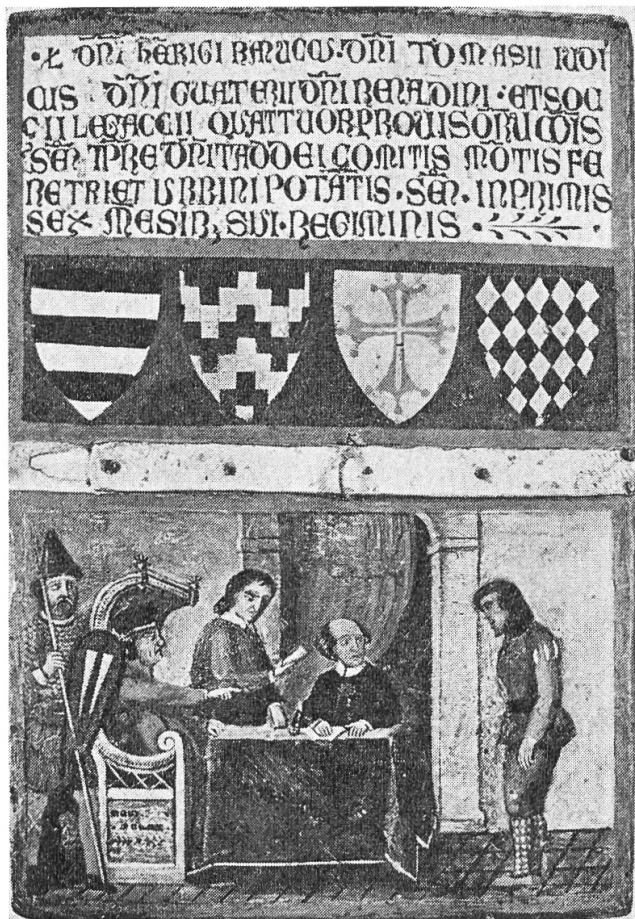 ·Ł· DÑI HERIGI RAUCCI·DÑI TOMASII IUDI
CIS DÑI GUALTERII DÑI RENALDINI·ET SOCI
LEGACCII QUATTUOR PROUISORU COIS
SEÑ·TPRE DÑI TADDEI COMITIS MŌTIS FE
RETRI ET URBINI POTĀTIS·SEÑ·IN PRIMIS
SEX MESIB; SUI·REGIMINIS·